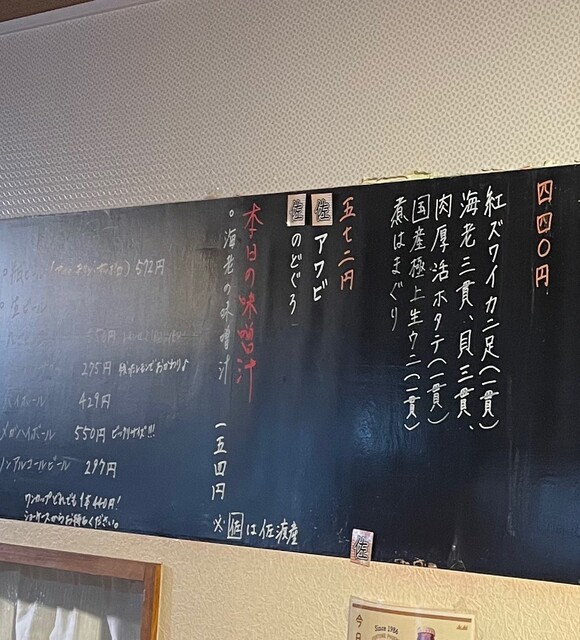 四四〇円
紅ズワイカニ二足(一貫)
海老三貫、貝三貫、
肉厚活ホタテ(一貫)
国産極上生ウニ(一貫)
煮はまぐり
五七二円
佐 アワビ
佐 のどぐろ
本日の味噌汁
。海老の味噌汁 一五四円
※佐は佐渡産
572円
生ビール
550円
275円
ハイボール 429円
メガハイボール 550円 ビックリサイズ!!!
ノンアルコールビール 297円
ワンカップどれでも1本440円!
ショーケースからお持ちください。
佐
Since 1986
Asahi
今日